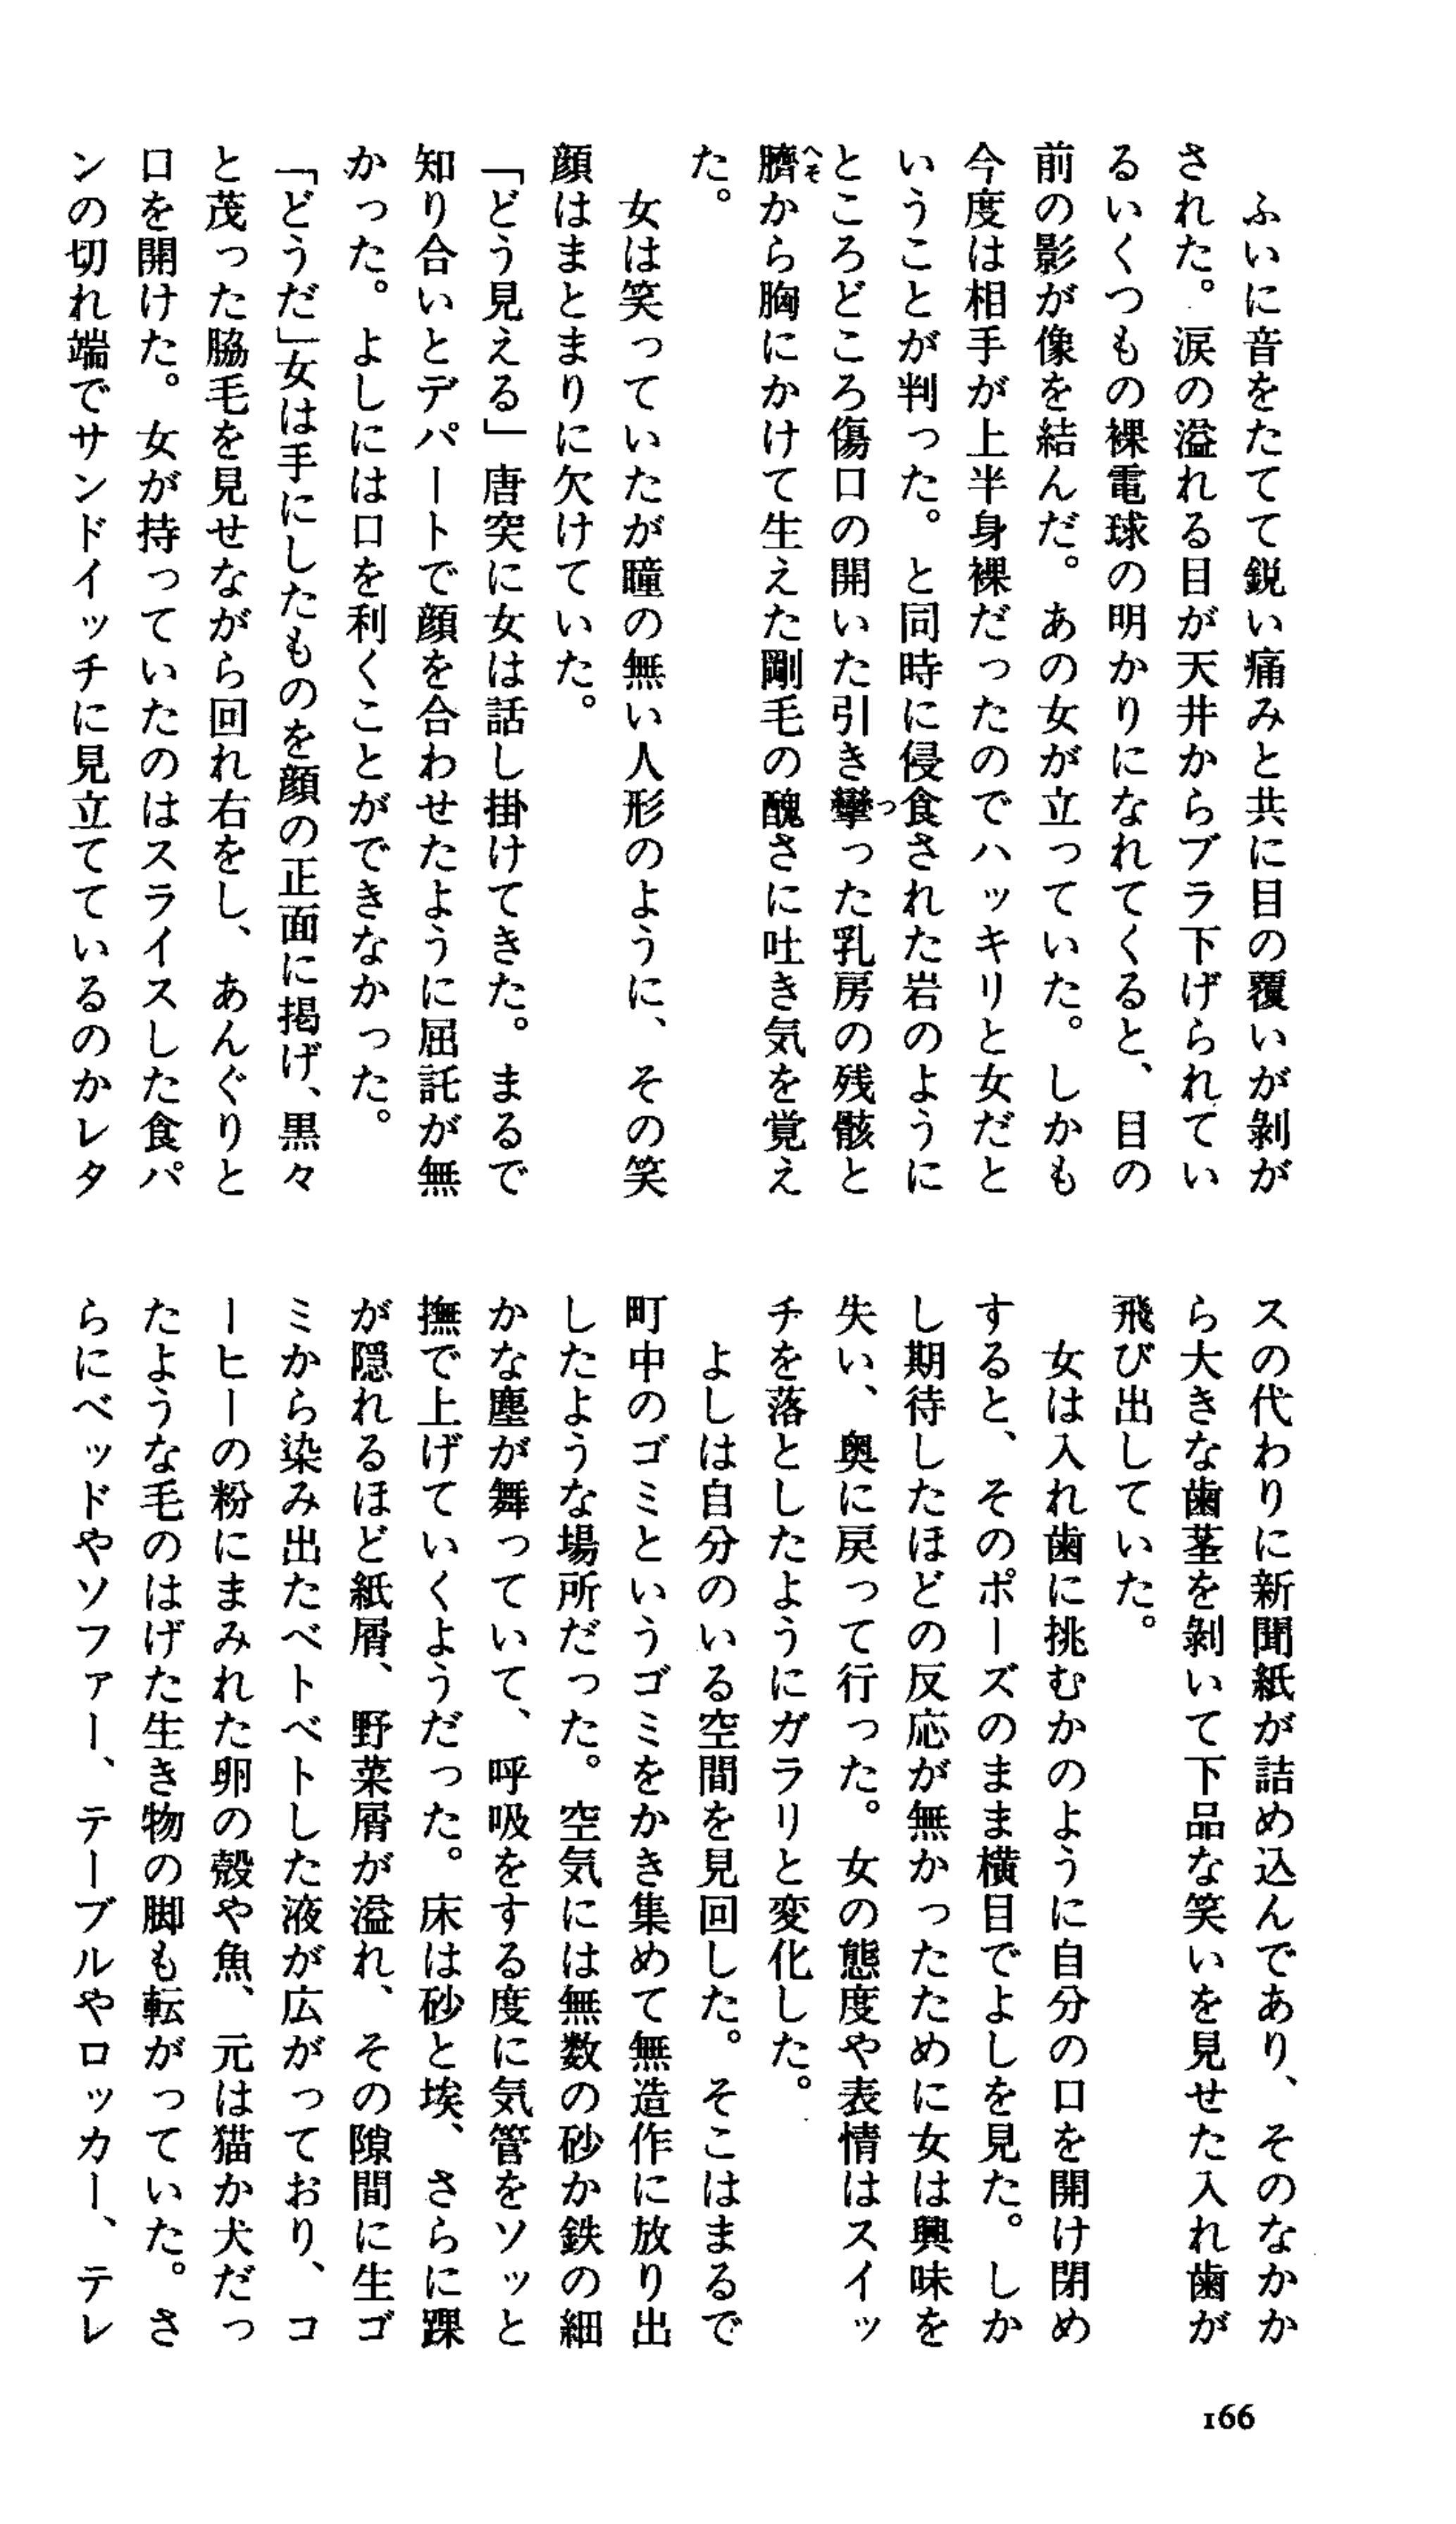 ふいに音をたてて鋭い痛みと共に目の覆いが剝が
された。涙の溢れる目が天井からブラ下げられてい
るいくつもの裸電球の明かりになれてくると、目の
前の影が像を結んだ。あの女が立っていた。しかも
今度は相手が上半身裸だったのでハッキリと女だと
いうことが判った。と同時に侵食された岩のように
ところどころ傷口の開いた引き攣った乳房の残骸と
臍から胸にかけて生えた剛毛の醜さに吐き気を覚え
た。
女は笑っていたが瞳の無い人形のように、その笑
顔はまとまりに欠けていた。
「どう見える」唐突に女は話し掛けてきた。まるで
知り合いとデパートで顔を合わせたように屈託が無
かった。よしには口を利くことができなかった。
「どうだ」女は手にしたものを顔の正面に掲げ、黒々
と茂った脇毛を見せながら回れ右をし、あんぐりと
口を開けた。女が持っていたのはスライスした食パ
ンの切れ端でサンドイッチに見立てているのかレタ
スの代わりに新聞紙が詰め込んであり、そのなかか
ら大きな歯茎を剝いて下品な笑いを見せた入れ歯が
飛び出していた。
女は入れ歯に挑むかのように自分の口を開け閉め
すると、そのポーズのまま横目でよしを見た。しか
し期待したほどの反応が無かったために女は興味を
失い、奥に戻って行った。女の態度や表情はスイッ
チを落としたようにガラリと変化した。
よしは自分のいる空間を見回した。そこはまるで
町中のゴミというゴミをかき集めて無造作に放り出
したような場所だった。空気には無数の砂か鉄の細
かな塵が舞っていて、呼吸をする度に気管をソッと
撫で上げていくようだった。床は砂と埃、さらに踝
が隠れるほど紙屑、野菜屑が溢れ、その隙間に生ゴ
ミから染み出たベトベトした液が広がっており、コ
ーヒーの粉にまみれた卵の殻や魚、元は猫か犬だっ
たような毛のはげた生き物の脚も転がっていた。さ
らにベッドやソファー、テーブルやロッカー、テレ
166